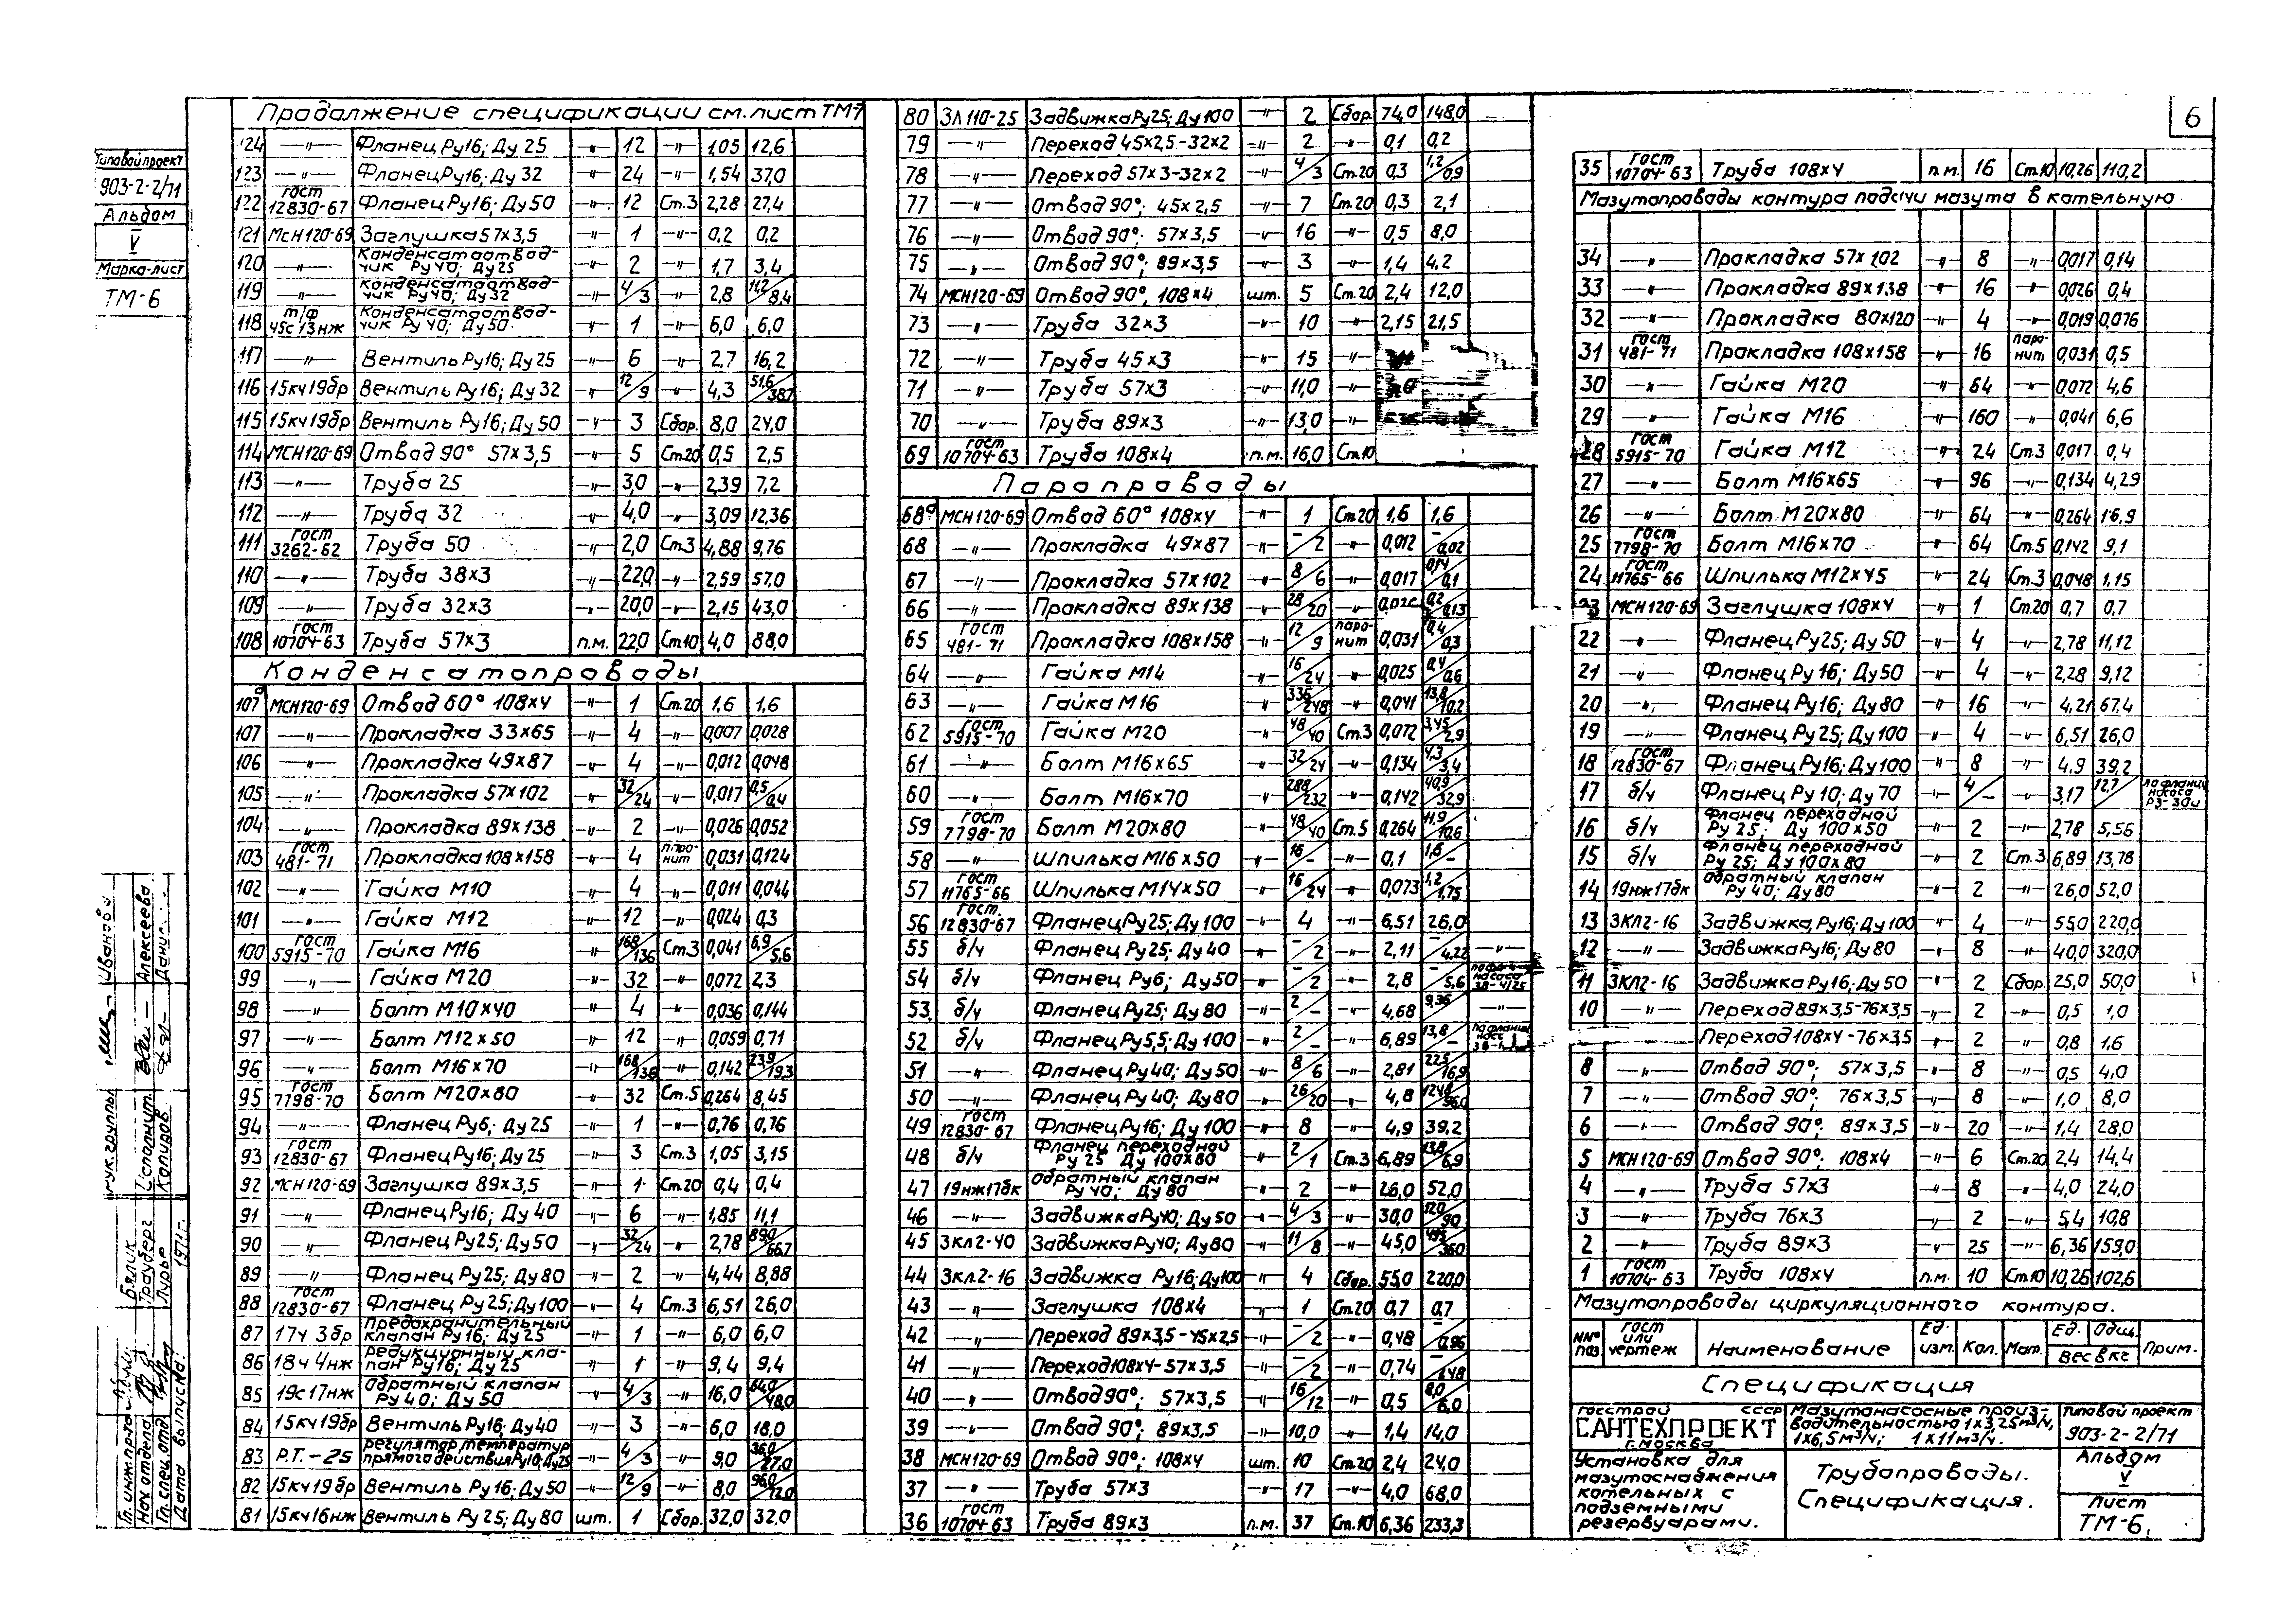 Продолжение спецификации см. лист ТМ-7
124 —"— Фланец Ру16; Ду 25 —"— 12 —"— 1,05 12,6
123 —"— Фланец Ру16; Ду 32 —"— 24 —"— 1,54 37,0
122 гост 12830-67 Фланец Ру16; Ду 50 —"— 12 Ст.3 2,28 27,4
121 МСН120-69 Заглушка 57х3,5 —"— 1 —"— 0,2 0,2
120 —"— Конденсатоотвод-чик Ру 40; Ду 25 —"— 2 —"— 1,7 3,4
119 —"— Конденсатоотвод-чик Ру40; Ду 32 —"— 4/3 —"— 2,8 11,2/8,4
118 т/ф 45с 13нж Конденсатоотвод-чик Ру 40; Ду 50. —"— 1 —"— 6,0 6,0
117 —"— Вентиль Ру16; Ду 25 —"— 6 —"— 2,7 16,2
116 15кч19бр Вентиль Ру16; Ду 32 —"— 12/9 —"— 4,3 51,6/38,7
115 15кч19бр Вентиль Ру16; Ду 50 —"— 3 Сбор. 8,0 24,0
114 МСН120-69 Отвод 90° 57х3,5 —"— 5 Ст.20 0,5 2,5
113 —"— Труба 25 —"— 3,0 —"— 2,39 7,2
112 —"— Труба 32 —"— 4,0 —"— 3,09 12,36
111 гост 3262-62 Труба 50 —"— 2,0 Ст.3 4,88 9,76
110 —"— Труба 38х3 —"— 22,0 —"— 2,59 57,0
109 —"— Труба 32х3 —"— 20,0 —"— 2,15 43,0
108 гост 10704-63 Труба 57х3 п.м. 22,0 Ст10 4,0 88,0
Конденсатопроводы
107а МСН120-69 Отвод 60° 108х4 —"— 1 Ст.20 1,6 1,6
107 —"— Прокладка 33х65 —"— 4 —"— 0,007 0,028
106 —"— Прокладка 49х87 —"— 4 —"— 0,012 0,048
105 —"— Прокладка 57х102 —"— 32/24 —"— 0,017 0,5/0,4
104 —"— Прокладка 89х138 —"— 2 —"— 0,026 0,052
103 гост 481-71 Прокладка 108х158 —"— 4 паро-нит 0,031 0,124
102 —"— Гайка М10 —"— 4 —"— 0,011 0,044
101 —"— Гайка М12 —"— 12 —"— 0,024 0,3
100 гост 5915-70 Гайка М16 —"— 168/136 Ст.3 0,041 6,9/5,6
99 —"— Гайка М20 —"— 32 —"— 0,072 2,3
98 —"— Болт М10х40 —"— 4 —"— 0,036 0,144
97 —"— Болт М12х50 —"— 12 —"— 0,059 0,71
96 —"— Болт М16х70 —"— 168/136 —"— 0,142 23,9/19,3
95 гост 7798-70 Болт М20х80 —"— 32 Ст.5 0,264 8,45
94 —"— Фланец Ру6; Ду 25 —"— 1 —"— 0,76 0,76
93 гост 12830-67 Фланец Ру16; Ду 25 —"— 3 Ст.3 1,05 3,15
92 МСН120-69 Заглушка 89х3,5 —"— 1 Ст.20 0,4 0,4
91 —"— Фланец Ру16; Ду 40 —"— 6 —"— 1,85 11,1
90 —"— Фланец Ру25; Ду 50 —"— 32/24 —"— 2,78 89,0/66,7
89 —"— Фланец Ру 25; Ду 80 —"— 2 —"— 4,44 8,88
88 гост 12830-67 Фланец Ру 25; Ду 100 —"— 4 Ст.3 6,51 26,0
87 17ч 3бр Предохранительный клапан Ру16; Ду 25 —"— 1 —"— 6,0 6,0
86 18ч 4нж Редукционный кла-пан Ру16; Ду 25 —"— 1 —"— 9,4 9,4
85 19с17нж Обратный клапан Ру 40; Ду 50 —"— 4/3 —"— 16,0 64,0/48,0
84 15кч19бр Вентиль Ру16; Ду40 —"— 3 —"— 6,0 18,0
83 Р.Т.-25 регулятор температур прямого действия Ру10; Ду25 —"— 4/3 —"— 9,0 36,0/27,0
82 15кч19бр Вентиль Ру16; Ду50 —"— 12/9 —"— 8,0 96,0/72,0
81 15кч16нж Вентиль Ру 25; Ду 80 шт. 1 Сбор. 32,0 32,0
80 ЗЛ110-25 Задвижка Ру25; Ду100 —"— 2 Сбор. 74,0 148,0
79 —"— Переход 45х2,5-32х2 —"— 2 —"— 0,1 0,2
78 —"— Переход 57х3-32х2 —"— 4/3 Ст.20 0,3 1,2/0,9
77 —"— Отвод 90°; 45х2,5 —"— 7 Ст.20 0,3 2,1
76 —"— Отвод 90°; 57х3,5 —"— 16 —"— 0,5 8,0
75 —"— Отвод 90°; 89х3,5 —"— 3 —"— 1,4 4,2
74 МСН120-69 Отвод 90°, 108х4 шт. 5 Ст.20 2,4 12,0
73 —"— Труба 32х3 —"— 10 —"— 2,15 21,5
72 —"— Труба 45х3 —"— 15 —"—
71 —"— Труба 57х3 —"— 11,0 —"—
70 —"— Труба 89х3 —"— 13,0 —"—
69 гост 10704-63 Труба 108х4 п.м. 16,0 Ст.10
Паропроводы
68а МСН120-69 Отвод 60° 108х4 —"— 1 Ст.20 1,6 1,6
68 —"— Прокладка 49х87 —"— –/2 —"— 0,012 –/0,02
67 —"— Прокладка 57х102 —"— 8/6 —"— 0,017 0,14/0,1
66 —"— Прокладка 89х138 —"— 28/20 —"— 0,026 0,2/0,13
65 гост 481-71 Прокладка 108х158 —"— 12/9 паро-нит 0,031 0,4/0,3
64 —"— Гайка М14 —"— 16/24 —"— 0,025 0,4/0,6
63 —"— Гайка М16 —"— 336/248 —"— 0,041 13,8/10,2
62 гост 5915-70 Гайка М20 —"— 48/40 Ст.3 0,072 3,45/2,9
61 —"— Болт М16х65 —"— 32/24 —"— 0,134 4,3/3,4
60 —"— Болт М16х70 —"— 288/232 —"— 0,142 40,9/32,9
59 гост 7798-70 Болт М20х80 —"— 48/40 Ст.5 0,264 11,9/10,6
58 —"— Шпилька М16х50 —"— 16/– —"— 0,1 1,6/–
57 гост 11765-66 Шпилька М14х50 —"— 16/24 —"— 0,073 1,2/1,75
56 гост. 12830-67 Фланец Ру25; Ду100 —"— 4 —"— 6,51 26,0
55 б/ч Фланец Ру25; Ду 40 —"— –/2 —"— 2,11 –/4,22 —"—
54 б/ч Фланец Ру6; Ду50 —"— –/2 —"— 2,8 –/5,6 насоса
53 б/ч Фланец Ру25; Ду 80 —"— 2/– —"— 4,68 9,36/– —"—
52 б/ч Фланец Ру5,5; Ду 100 —"— 2/– —"— 6,89 13,8/– по фланцу
51 —"— Фланец Ру40; Ду50 —"— 8/6 —"— 2,81 22,5/16,9
50 —"— Фланец Ру 40; Ду80 —"— 26/20 —"— 4,8 124,8/96,0
49 гост 12830-67 Фланец Ру16; Ду 100 —"— 8 —"— 4,9 39,2
48 б/ч Фланец переходной Ру 25 Ду 100х80 —"— 2/1 Ст.3 6,89 13,8/6,9
47 19нж17бк Обратный клапан Ру 40; Ду 80 —"— 2 —"— 26,0 52,0
46 —"— Задвижка Ру40; Ду 50 —"— 4/3 —"— 30,0 120/90
45 3кл2-40 Задвижка Ру40; Ду80 —"— 11/8 —"— 45,0 495/360
44 3кл.2-16 Задвижка Ру16; Ду100 —"— 4 Сбор. 55,0 220,0
43 —"— Заглушка 108х4 —"— 1 Ст.20 0,7 0,7
42 —"— Переход 89х3,5-45х2,5 —"— –/2 —"— 0,48 –/0,96
41 —"— Переход 108х4-57х3,5 —"— –/2 —"— 0,74 –/1,48
40 —"— Отвод 90°; 57х3,5 —"— 16/12 —"— 0,5 8,0/6,0
39 —"— Отвод 90°; 89х3,5 —"— 10,0 —"— 1,4 14,0
38 МСН120-69 Отвод 90°; 108х4 шт. 10 Ст.20 2,4 24,0
37 —"— Труба 57х3 —"— 17 —"— 4,0 68,0
36 гост 10704-63 Труба 89х3 п.м. 37 Ст.10 6,36 233,3
6
35 гост 10704-63 Труба 108х4 п.м. 16 Ст.10 10,26 110,2
Мазутопроводы контура подачи мазута в котельную
34 —"— Прокладка 57х102 —"— 8 —"— 0,017 0,14
33 —"— Прокладка 89х138 —"— 16 —"— 0,026 0,4
32 —"— Прокладка 80х120 —"— 4 —"— 0,019 0,076
31 гост 481-71 Прокладка 108х158 —"— 16 паро-нит 0,031 0,5
30 —"— Гайка М20 —"— 64 —"— 0,072 4,6
29 —"— Гайка М16 —"— 160 —"— 0,041 6,6
28 гост 5915-70 Гайка М12 —"— 24 Ст.3 0,017 0,4
27 —"— Болт М16х65 —"— 96 —"— 0,134 4,29
26 —"— Болт М20х80 —"— 64 —"— 0,264 16,9
25 гост 7798-70 Болт М16х70 —"— 64 Ст.5 0,142 9,1
24 гост 11765-66 Шпилька М12х45 —"— 24 Ст.3 0,048 1,15
23 МСН120-69 Заглушка 108х4 —"— 1 Ст.20 0,7 0,7
22 —"— Фланец Ру25; Ду 50 —"— 4 —"— 2,78 11,12
21 —"— Фланец Ру 16; Ду50 —"— 4 —"— 2,28 9,12
20 —"— Фланец Ру16; Ду80 —"— 16 —"— 4,21 67,4
19 —"— Фланец Ру 25; Ду 100 —"— 4 —"— 6,51 26,0
18 гост 12830-67 Фланец Ру16; Ду100 —"— 8 —"— 4,9 39,2
17 б/ч Фланец Ру 10; Ду 70 —"— 4/– —"— 3,17 12,7/– по фланцу насоса РЗ-30и
16 б/ч Фланец переходной Ру 25; Ду 100х50 —"— 2 —"— 2,78 5,56
15 б/ч Фланец переходной Ру 25; Ду 100х80 —"— 2 Ст.3 6,89 13,78
14 19нж17бк Обратный клапан Ру 40; Ду80 —"— 2 —"— 26,0 52,0
13 ЗКЛ2-16 Задвижка Ру16; Ду100 —"— 4 —"— 55,0 220,0
12 —"— Задвижка Ру16; Ду 80 —"— 8 —"— 40,0 320,0
11 ЗКЛ2-16 Задвижка Ру16; Ду 50 —"— 2 Сбор. 25,0 50,0
10 —"— Переход 89х3,5-76х3,5 —"— 2 —"— 0,5 1,0
Переход 108х4-76х3,5 —"— 2 —"— 0,8 1,6
8 —"— Отвод 90°; 57х3,5 —"— 8 —"— 0,5 4,0
7 —"— Отвод 90°; 76х3,5 —"— 8 —"— 1,0 8,0
6 —"— Отвод 90°; 89х3,5 —"— 20 —"— 1,4 28,0
5 МСН120-69 Отвод 90°; 108х4 —"— 6 Ст.20 2,4 14,4
4 —"— Труба 57х3 —"— 8 —"— 4,0 24,0
3 —"— Труба 76х3 —"— 2 —"— 5,4 10,8
2 —"— Труба 89х3 —"— 25 —"— 6,36 159,0
1 гост 10704-63 Труба 108х4 п.м. 10 Ст.10 10,26 102,6
Мазутопроводы циркуляционного контура.
№№ поз гост или чертеж Наименование Ед. изм. Кол. Мат. Ед. Общ. Вес в кг Прим.
Спецификация
Госстрой СССР
САНТЕХПРОЕКТ
г. Москва
Мазутонасосные произ-
водительностью 1х3,25м³/ч,
1х6,5м³/ч; 1х11м³/ч.
Типовой проект
903-2-2/71
Установка для
мазутоснабжения
котельных с
подземными
резервуарами.
Трубопроводы.
Спецификация.
Альбом
V
Лист
ТМ-6
Типовой проект
903-2-2/71
Альбом
V
Марка-лист
ТМ-6
Рук. группы Иванова
Исполнит. Алексеева
Копиров.
Гл. инж. пр-та
Нач. отдела
Гл. спец. отд.
Дата выпуска:
Бялик
Трауберг
Лурье
1971г.